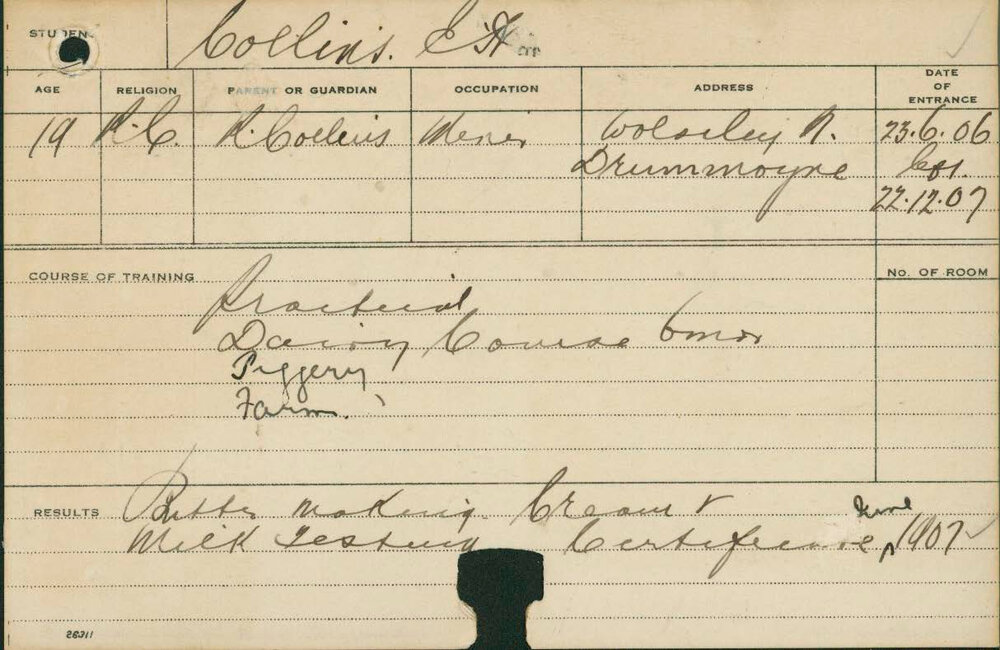 STUDENT
Collins. E
AGE
RELIGION
PARENT OR GUARDIAN
OCCUPATION
ADDRESS
DATE
OF
ENTRANCE
19
R.C.
R. Collins
Wolseley R.
Drummoyne
23.6.06
22.12.07
COURSE OF TRAINING
No. OF ROOM
Practical
Dairy Course 6mos
Piggery
Farm.
RESULTS
Butter making. Cream &
Milk Testing Certificate ^ June 1907 ✓
26311